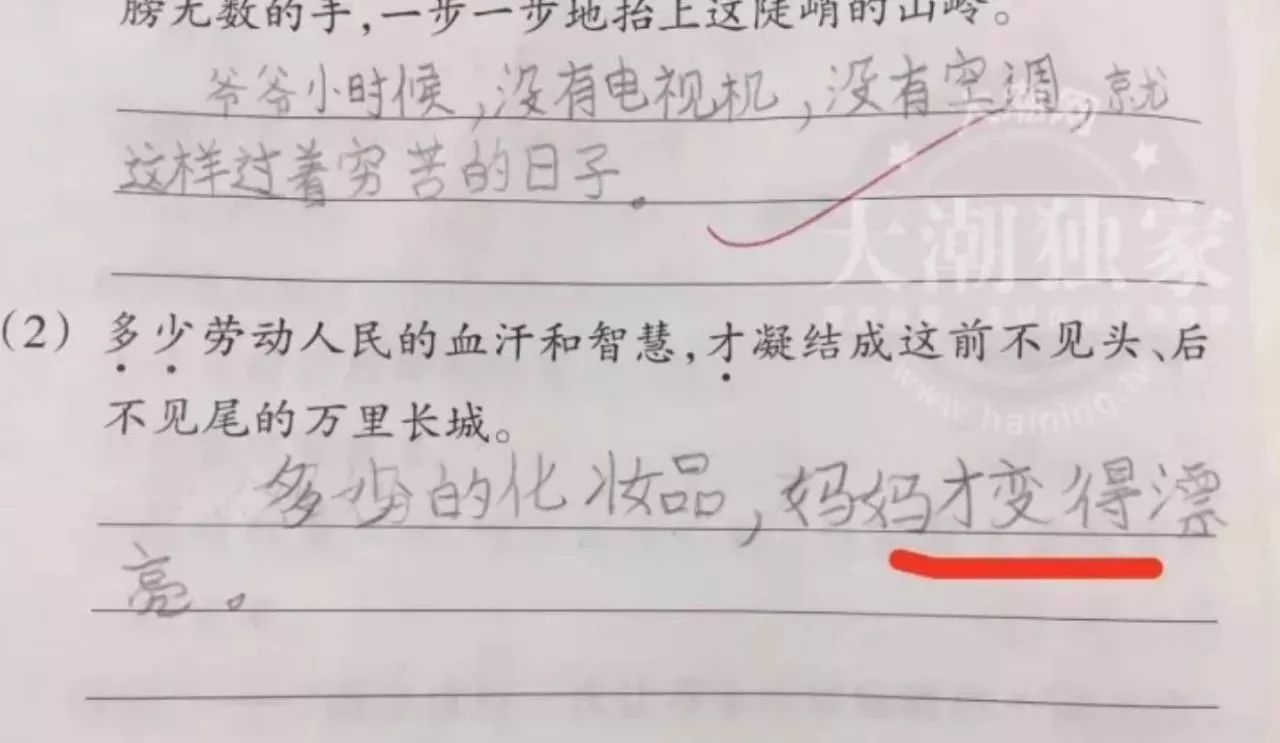 膀无数的手，一步一步地抬上这陡峭的山岭。
爷爷小时候，没有电视机，没有空调，就
这样过着穷苦的日子。
大潮网
大潮独家
www.haining.tv
(2) 多少劳动人民的血汗和智慧，才凝结成这前不见头、后
不见尾的万里长城。
多少的化妆品，妈妈才变得漂
亮。